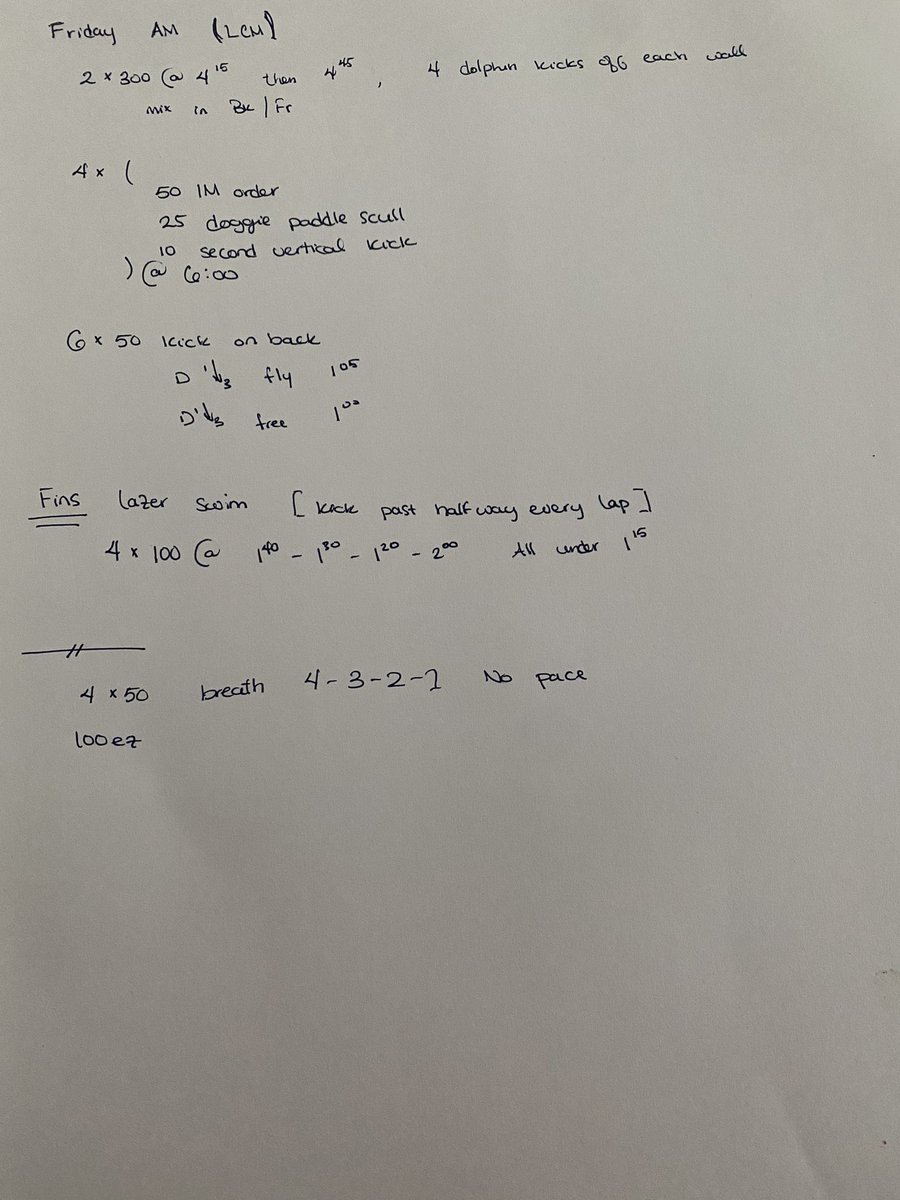 Friday AM (LCM)
2 x 300 @ 4¹⁵ then 4⁴⁵, 4 dolphin kicks off each wall
mix in Bk/Fr
4 x (
50 IM order
25 doggie paddle scull
10 second vertical kick
) @ 6:00
6 x 50 kick on back
D'↓3 fly 1⁰⁵
D'↓3 free 1⁰⁰
Fins lazer swim [kick past halfway every lap]
4 x 100 @ 1⁴⁰ - 1³⁰ - 1²⁰ - 2⁰⁰ All under 1¹⁵
4 x 50 breath 4-3-2-1 No pace
100 ez